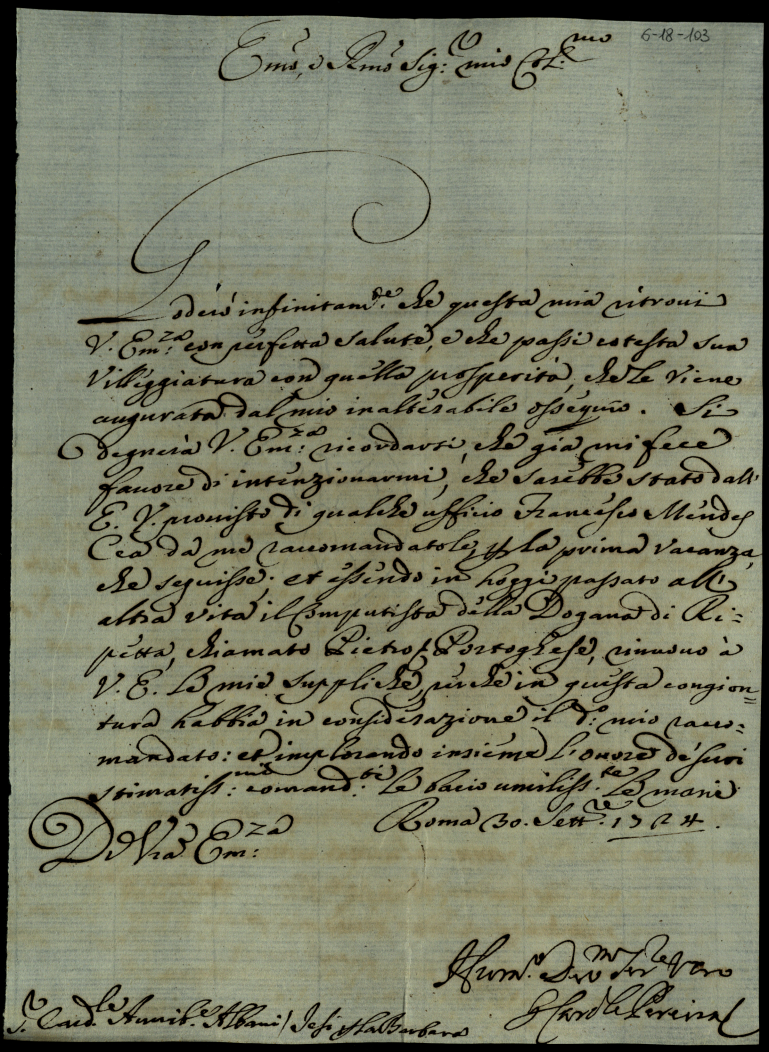 6-18-103
Emo, e Rmo Sig:r mio Col:mo
Goderò infinitam.te che questa mia ritrovi
V. Em:za con perfetta salute, e che passi cotesta sua
Villeggiatura con quella prosperità, che le viene
augurata dal mio inalterabile ossequio. Si
degnerà V. Em:za ricordarsi, che già mi fece
favore di intenzionarmi, che sarebbe stato dall'
E. V. provisto di qualche ufficio Francesco Mendes
Cea da me raccomandatole p la prima vacanza,
che seguisse; et essendo in hoggi passato all'
altra vita il Computista della Dogana di Ri=
petta, chiamato Pietro Portoghese, rinuovo à
V. E. le mie suppliche, perche in questa congion=
tura habbia in considerazione il d:o mio racco=
mandato: et implorando insieme l'onore de suoi
stimatiss:mi comand:ti le bacio umiliss:te le mani
Roma 30. Sett:re 1724.
Di Vra Em:za
Humo Devmo Serre Vero
Card.le Pereira
S.r Card.le Annib.e Albani / Jesi p la Barbara